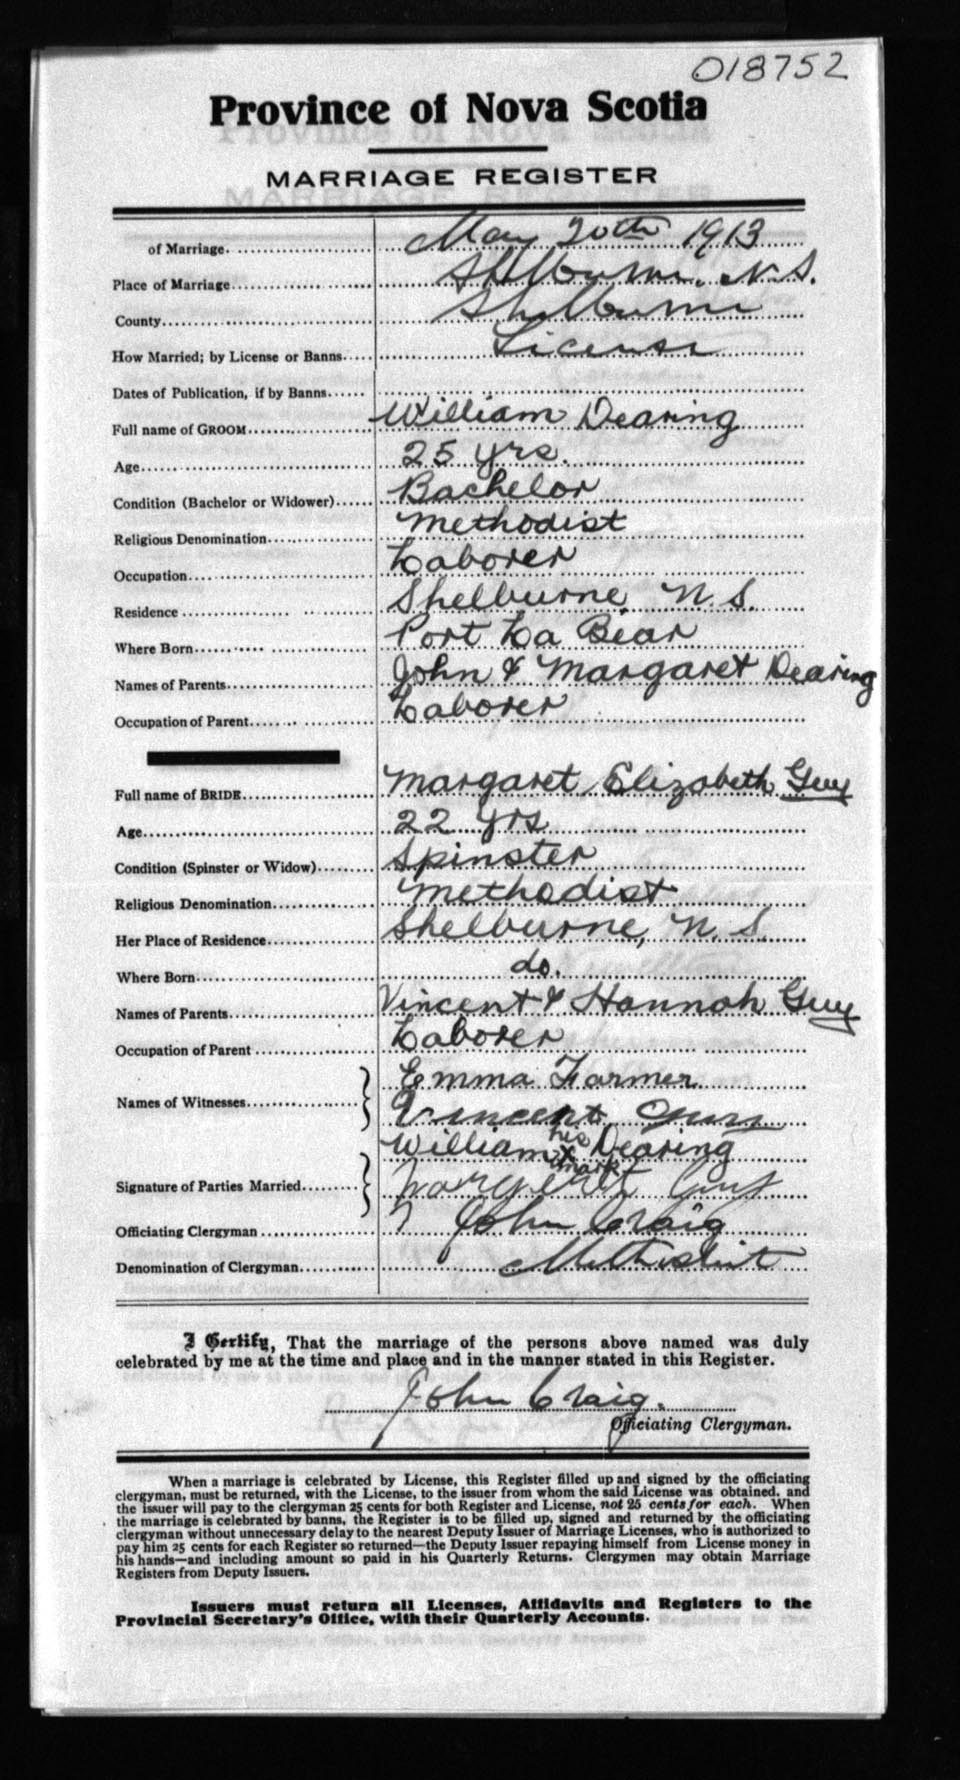 018752
Province of Nova Scotia
MARRIAGE REGISTER
of Marriage. May 20th 1913
Place of Marriage Shelburne, N.S.
County Shelburne
How Married; by License or Banns License
Dates of Publication, if by Banns
Full name of GROOM William Dearing
Age 25 yrs.
Condition (Bachelor or Widower) Bachelor
Religious Denomination Methodist
Occupation Laborer
Residence Shelburne, N.S.
Where Born Port La Bear
Names of Parents John & Margaret Dearing
Occupation of Parent Laborer
Full name of BRIDE Margaret Elizabeth Guy
Age 22 yrs
Condition (Spinster or Widow) Spinster
Religious Denomination Methodist
Her Place of Residence Shelburne, N.S.
Where Born do.
Names of Parents Vincent & Hannah Guy
Occupation of Parent Laborer
Names of Witnesses Emma Farmer
Vincent Guy
William his x mark Dearing
Signature of Parties Married Margaret Guy
Officiating Clergyman John Craig
Denomination of Clergyman Methodist
I Certify, That the marriage of the persons above named was duly
celebrated by me at the time and place and in the manner stated in this Register.
John Craig.
Officiating Clergyman.
When a marriage is celebrated by License, this Register filled up and signed by the officiating
clergyman, must be returned, with the License, to the issuer from whom the said License was obtained, and
the issuer will pay to the clergyman 25 cents for both Register and License, not 25 cents for each. When
the marriage is celebrated by banns, the Register is to be filled up, signed and returned by the officiating
clergyman without unnecessary delay to the nearest Deputy Issuer of Marriage Licenses, who is authorized to
pay him 25 cents for each Register so returned—the Deputy Issuer repaying himself from License money in
his hands—and including amount so paid in his Quarterly Returns. Clergymen may obtain Marriage
Registers from Deputy Issuers.
Issuers must return all Licenses, Affidavits and Registers to the
Provincial Secretary's Office, with their Quarterly Accounts.